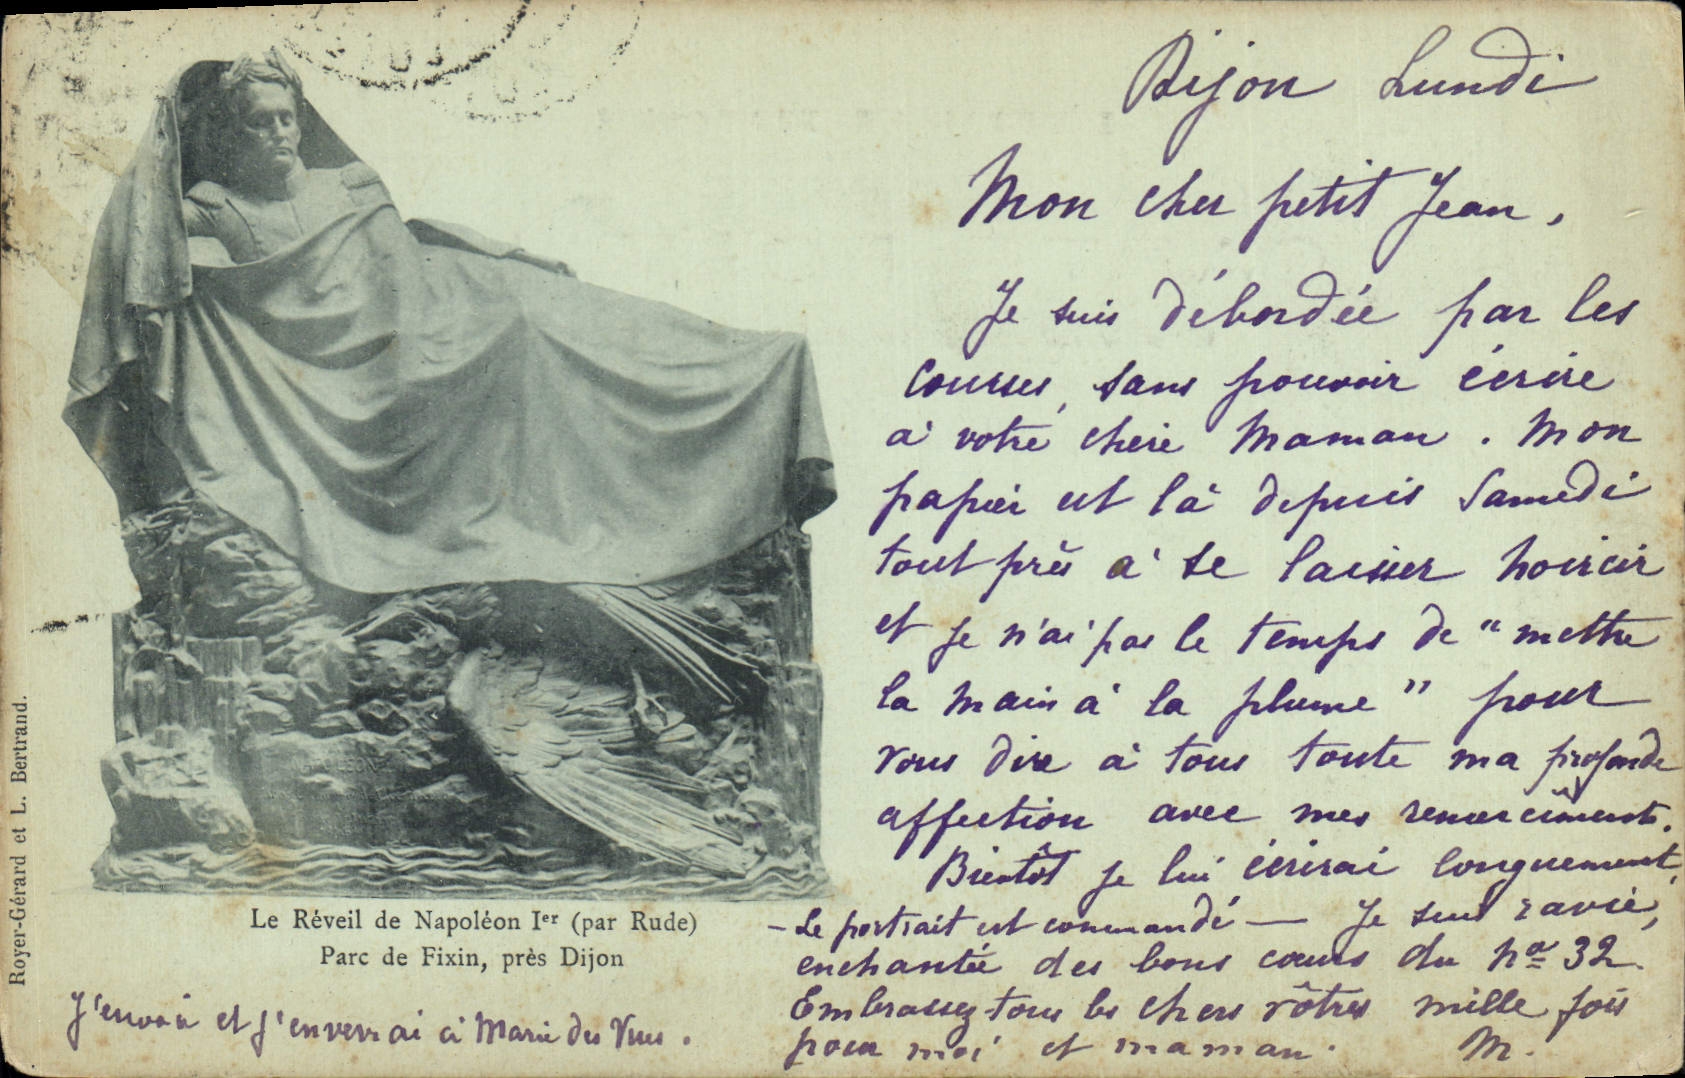 Dijon Lundi
Mon cher petit Jean,
Je suis débordée par les
courses, sans pouvoir écrire
à votre chère Maman. Mon
papier est là depuis Samedi
tout prêt à se laisser noircir
et je n'ai pas le temps de "mettre
la main à la plume" pour
vous dire à tous toute ma profonde
affection avec mes remerciements.
Bientôt je lui écrirai longuement,
- Le portrait est commandé — Je suis ravie,
enchantée des bons cœurs du no 32.
Embrassez tous les chers vôtres mille fois
pour moi et maman. M.
Le Réveil de Napoléon Ier (par Rude)
Parc de Fixin, près Dijon
J'envoie et j'enverrai à Marie des Vues.
Royer-Gérard et L. Bertrand.